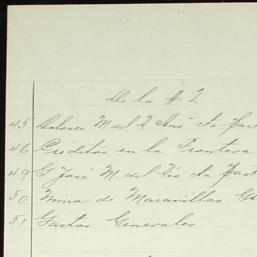 De la # 2
45 Dolores M del R
46 Créditos en la Frontera
49 G José M. del Rio cta Part
50 Mina de Maravillas
51 Gastos Generales